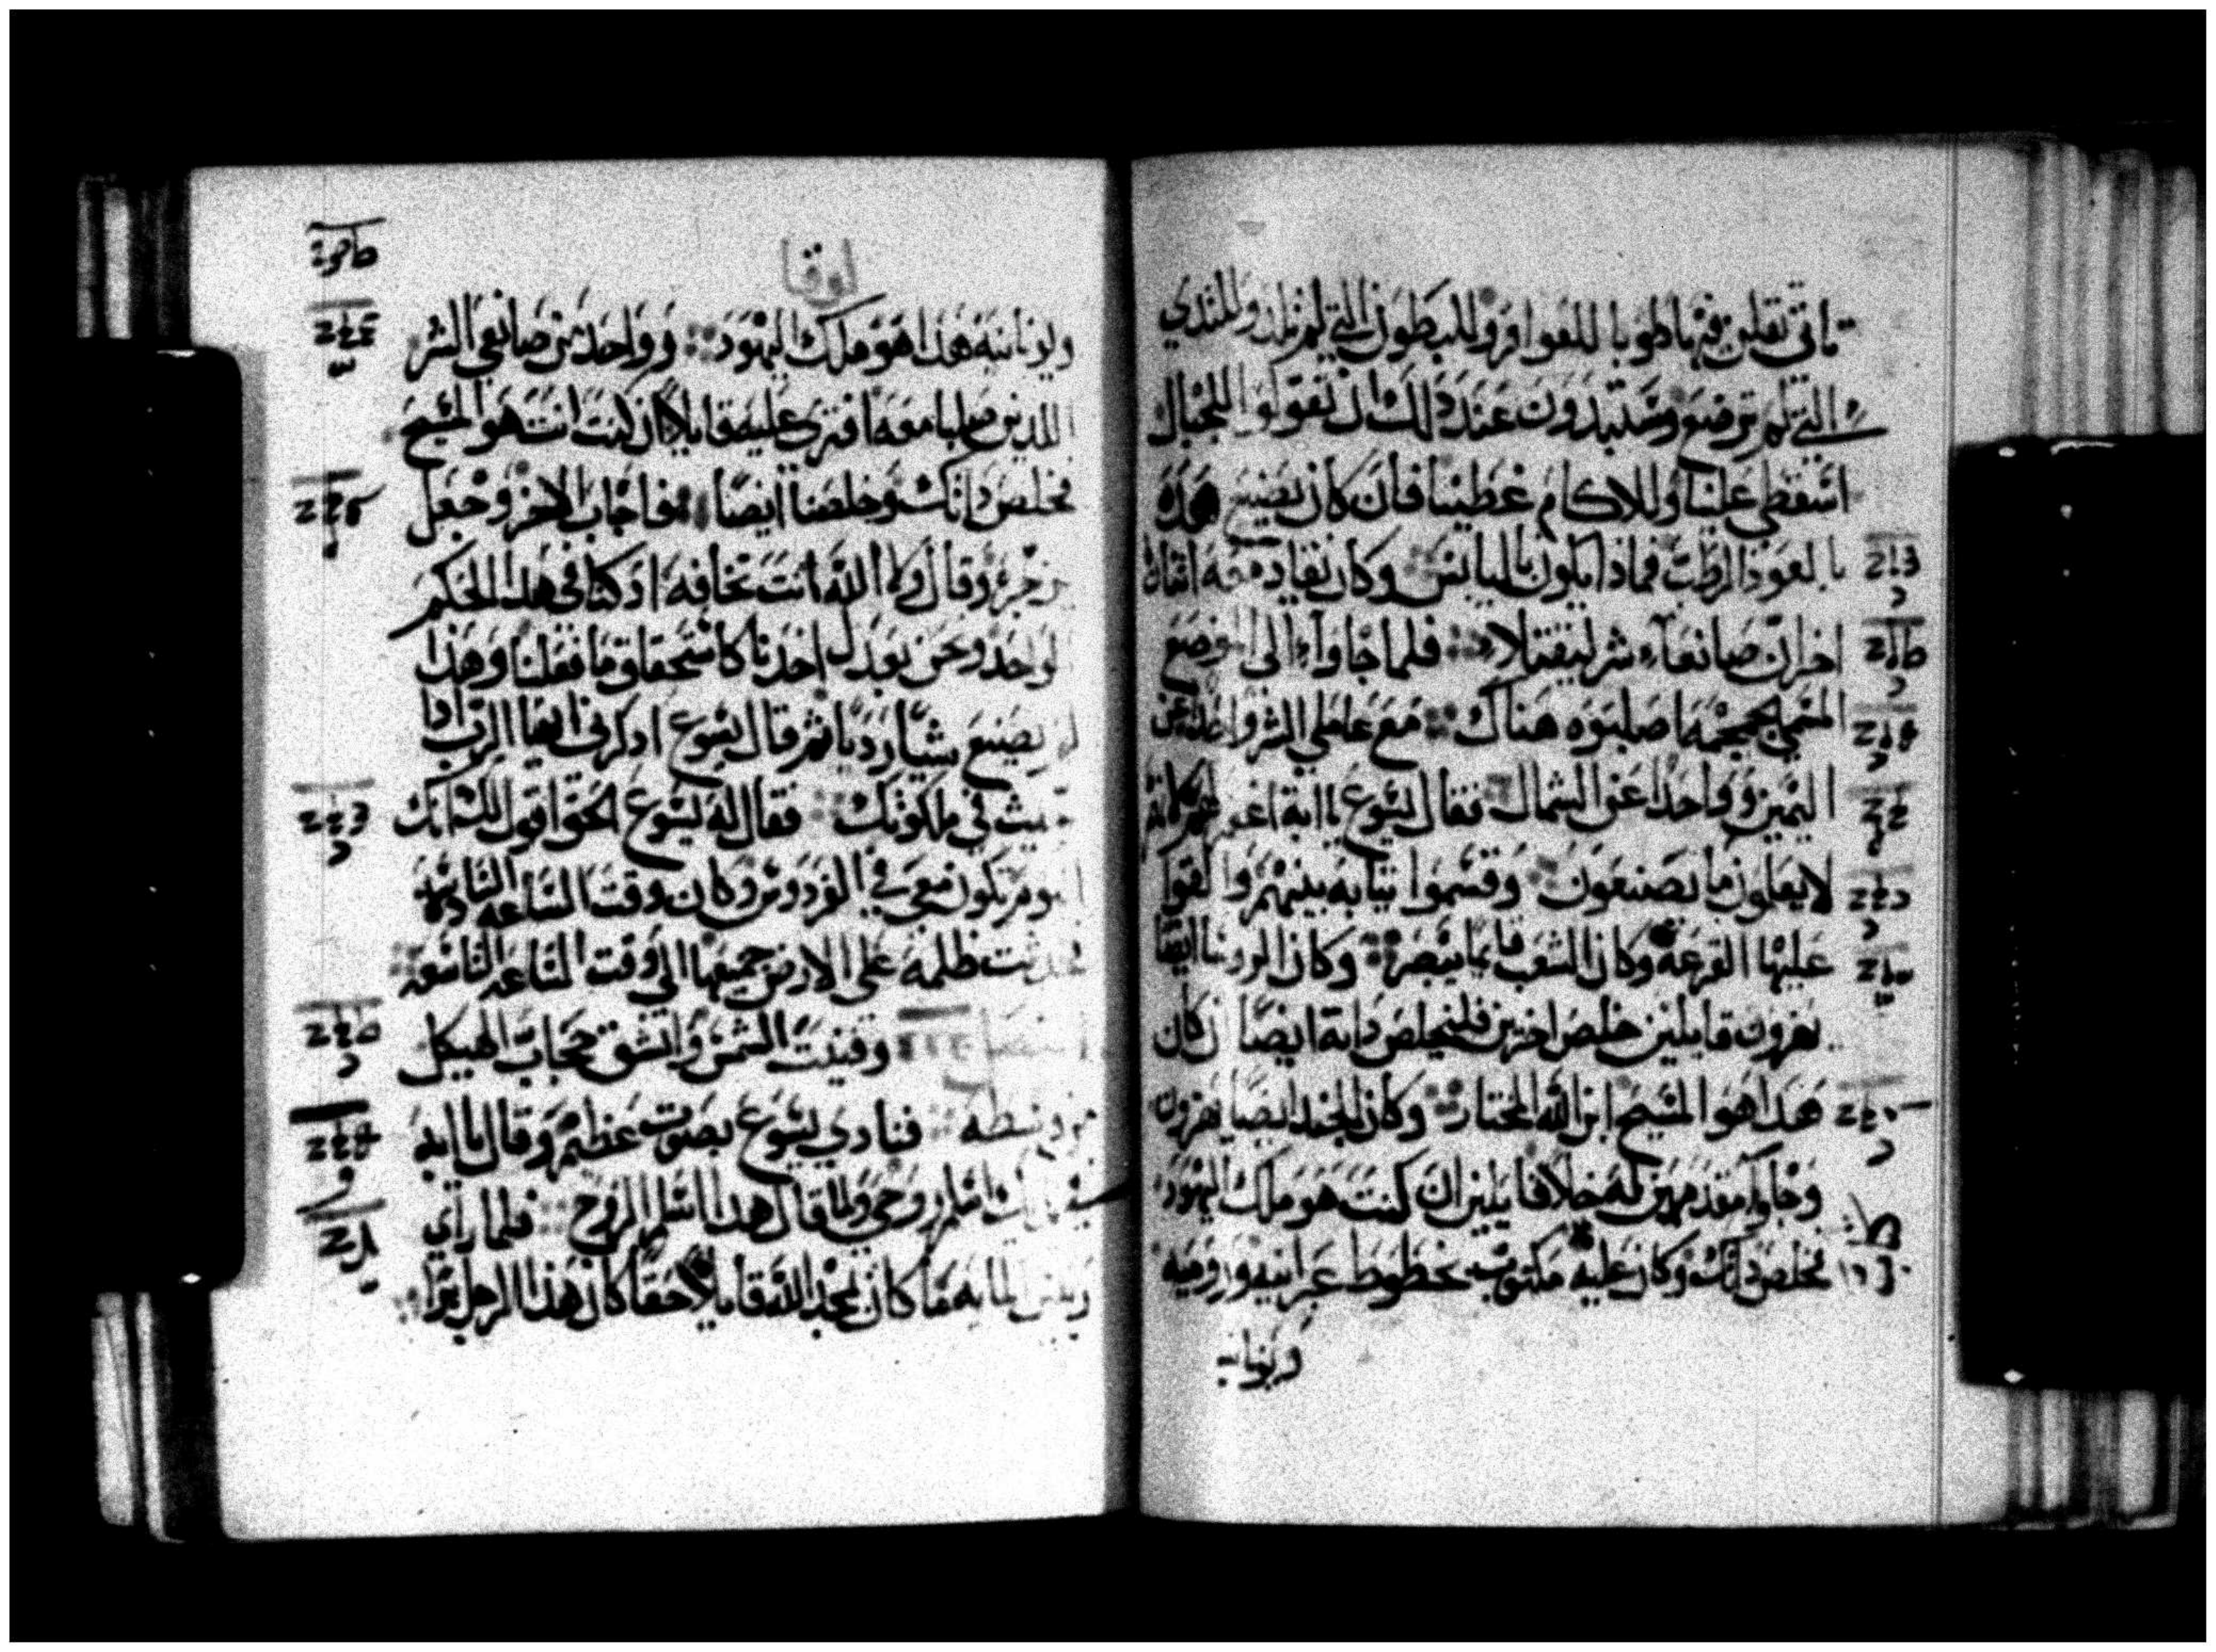 تاتي تقلن فيها طوبا للعواقر وللبطون التي لم تلد وللثدي
التي لم ترضع وستبدون عند ذلك ان تقولوا للجبال
اسقطي علينا وللاكام غطينا فان كان يصنع هذه
بالعود الرطب فماذا يكون باليابس وكان يقاد معه اثنان
اخران صانعا شر ليقتلا فلما جاوا الي الموضع
المسمي بجمجمه ما صلبوه هناك مع عاملي الشر واحدا عن
اليمين وواحدا عن الشمال فقال يسوع يا ابة اغفر لهم لانهم
لا يعلمون ما يصنعون وقسموا ثيابه بينهم والقوا
عليها القرعة وكان الشعب قايما يبصر وكان الروسا ايضا
يهزون قايلين خلص اخرين فليخلص ذاته ايضا ان كان
هذا هو المسيح ابن الله المختار وكان الجند ايضا يهزون
وجاوا مقدمين له خلا قايلين ان كنت هو ملك اليهود
تخلص ذاتك وكان عليه مكتوب بخطوط عبرانيه وروميه
ويونانيه
لوقا
ويونانيه هذا هو ملك اليهود وواحد من صانعي الشر
اللذين صلبا معه افتري عليه قايلا ان كنت انت هو المسيح
تخلص ذاتك وخلصنا ايضا فاجاب الاخر وجعل
يزجره وقال ولا الله انت تخافه اذ كنا في هذا الحكم
لواحد ونحن بعدل اخذنا كاستحقاق ما فعلنا وهذا
لم يصنع شيا رديا ثم قال يسوع اذكرني ايها الرب اذا
جيت في ملكوتك فقال له يسوع الحق اقول لك انك
اليوم تكون معي في الفردوس وكان وقت الساعه السادسه
فحدثت ظلمه علي الارض جميعها الي وقت الساعه التاسعه
وفنيت الشمس وانشق حجاب الهيكل
من وسطه فنادي يسوع بصوت عظيم وقال يا ابة
في يديك اسلم روحي ولما قال هذا اسلم الروح فلما راي
ريس المايه ما كان مجد الله قايلا حقا كان هذا الرجل برا